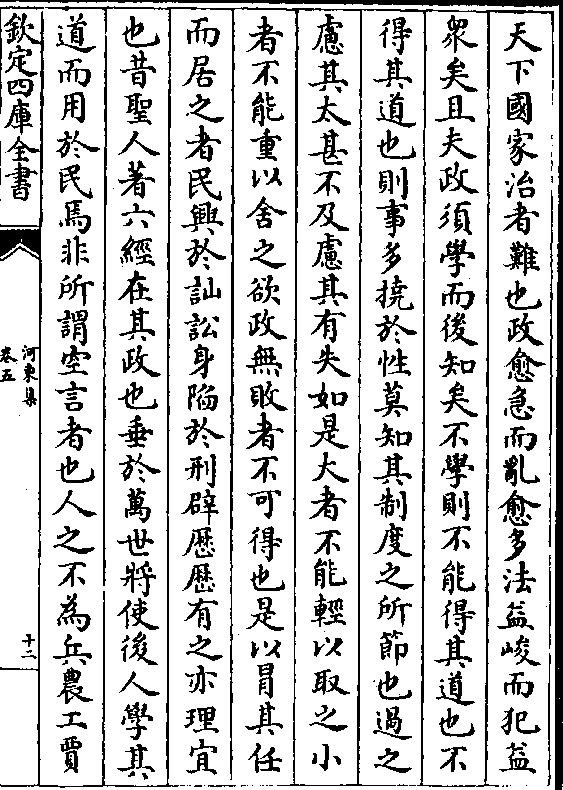 天下國家治者難也政愈急而亂愈多法益峻而犯益
衆矣且夫政須學而後知矣不學則不能得其道也不
得其道也則事多撓於性莫知其制度之所節也過之
慮其太甚不及慮其有失如是大者不能輕以取之小
者不能重以舍之欲政無敗者不可得也是以冒其任
而居之者民興於訕訟身陥於刑辟歴歴有之亦理宜
也昔聖人著六經在其政也垂於萬世將使後人學其
道而用於民焉非所謂空言者也人之不為兵農工賈
欽定四庫全書
河東集
卷五
十二